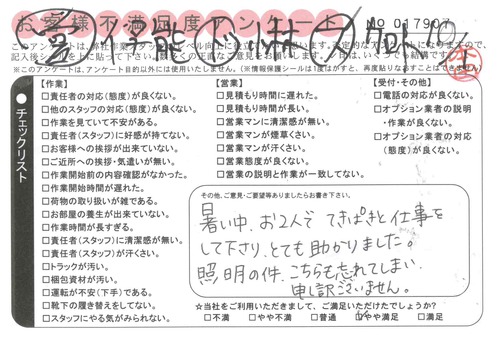 お客様不満足度アンケート
NO 017907
このアンケートは、弊社作業
※このアンケートは、アンケート目的以外には使いいたしません。(※情報保護シールは1度はがすと、再度貼りなおすことはできません)
チェックリスト
【作業】
□責任者の対応(態度)が良くない。
□他のスタッフの対応(態度)が良くない。
□作業を見ていて不安がある。
□責任者(スタッフ)に好感が持てない。
□お客様への挨拶が出来ていない。
□ご近所への挨拶・気遣いが無い。
□作業開始前の内容確認がなかった。
□作業開始時間が遅れた。
□荷物の取り扱いが雑である。
□お部屋の養生が出来ていない。
□作業時間が長すぎる。
□責任者(スタッフ)に清潔感が無い。
□責任者(スタッフ)が汗くさい。
□トラックが汚い。
□梱包資材が汚い。
□運転が不安(下手)である。
□靴下の履き替えをしてない。
□スタッフにやる気がみられない。
【営業】
□見積もり時間に遅れた。
□見積もり時間が長い。
□営業マンに清潔感が無い。
□営業マンが煙草くさい。
□営業マンが汗くさい。
□営業態度が良くない。
□営業の説明と作業が一致してない。
【受付・その他】
□電話の対応が良くない。
□オプション業者の説明
・作業が良くない。
□オプション業者の対応
(態度)が良くない。
その他、ご意見・ご要望等ありましたらお書き下さい。
暑い中、お2人で てきぱきと仕事を
して下さり、とても助かりました。
照明の件、こちらも忘れてしまい、
申し訳ございません。
★当社をご利用いただきまして、ご満足いただけたでしょうか?
□不満 □やや不満 □普通 □やや満足 □満足